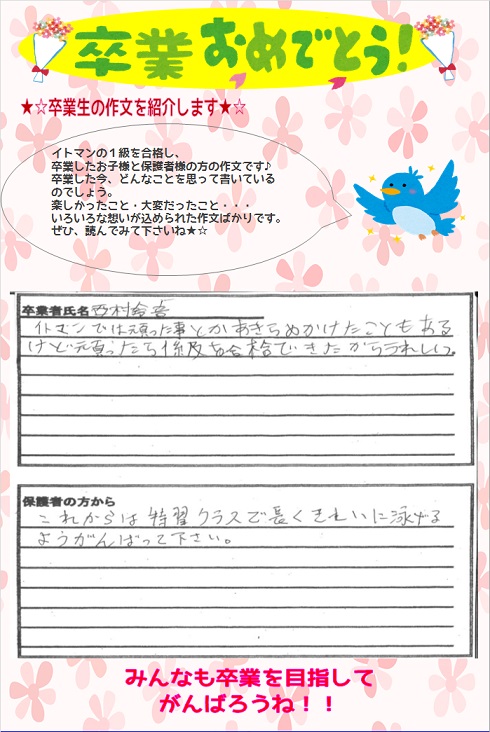 卒業おめでとう!
★☆卒業生の作文を紹介します★☆
イトマンの1級を合格し、
卒業したお子様と保護者様の方の作文です♪
卒業した今、どんなことを思って書いている
のでしょう。
楽しかったこと・大変だったこと・・・
いろいろな想いが込められた作文ばかりです。
ぜひ、読んでみて下さいね★☆
卒業者氏名 西村
イトマンでは頑った事とかあきらめかけたこともある
けど頑ったら1級を合格できたからうれしい。
保護者の方から
これからは特習クラスで長くきれいに泳げる
ようがんばって下さい。
みんなも卒業を目指して
がんばろうね!!